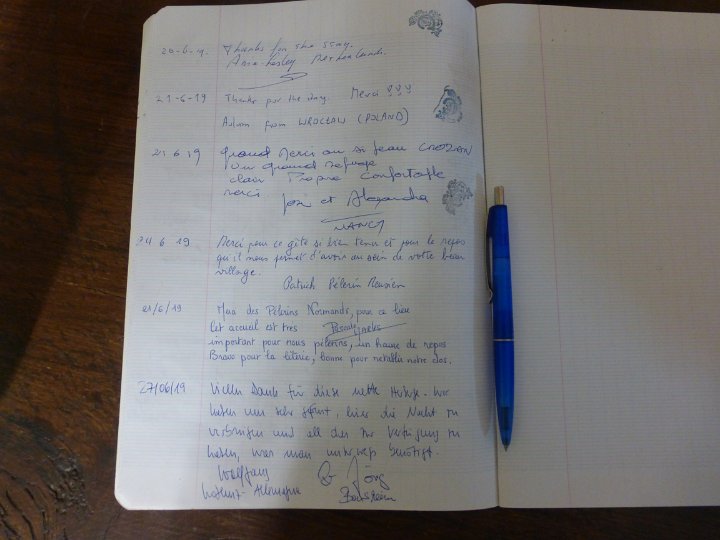 20-6-19. Thanks for the stay.
21-6-19 Thanks for the stay. Merci !!!
from WROCŁAW (POLAND)
6 19 Grand Merci au si beau
Un grand refuge
clair Propre Confortable
merci.
et Alexandra
NANCY
24 6 19 Merci pour ce gîte si bien tenu et pour le repos
qu'il nous permet d'avoir au sein de votre beau
village.
Patrick Pèlerin
/6/19 des Pèlerins Normands, pour ce lieu
Cet accueil est très
important pour nous pèlerins, un havre de repos
Bravo pour la literie, bonne pour notre dos.
27/06/19 Vielen Dank für diese nette Hütte. Wir
haben uns sehr gefreut, hier die Nacht zu
verbringen und all das zur Verfügung zu
haben, was man unterwegs benötigt.
Wolfgang & Jörg
Allemagne